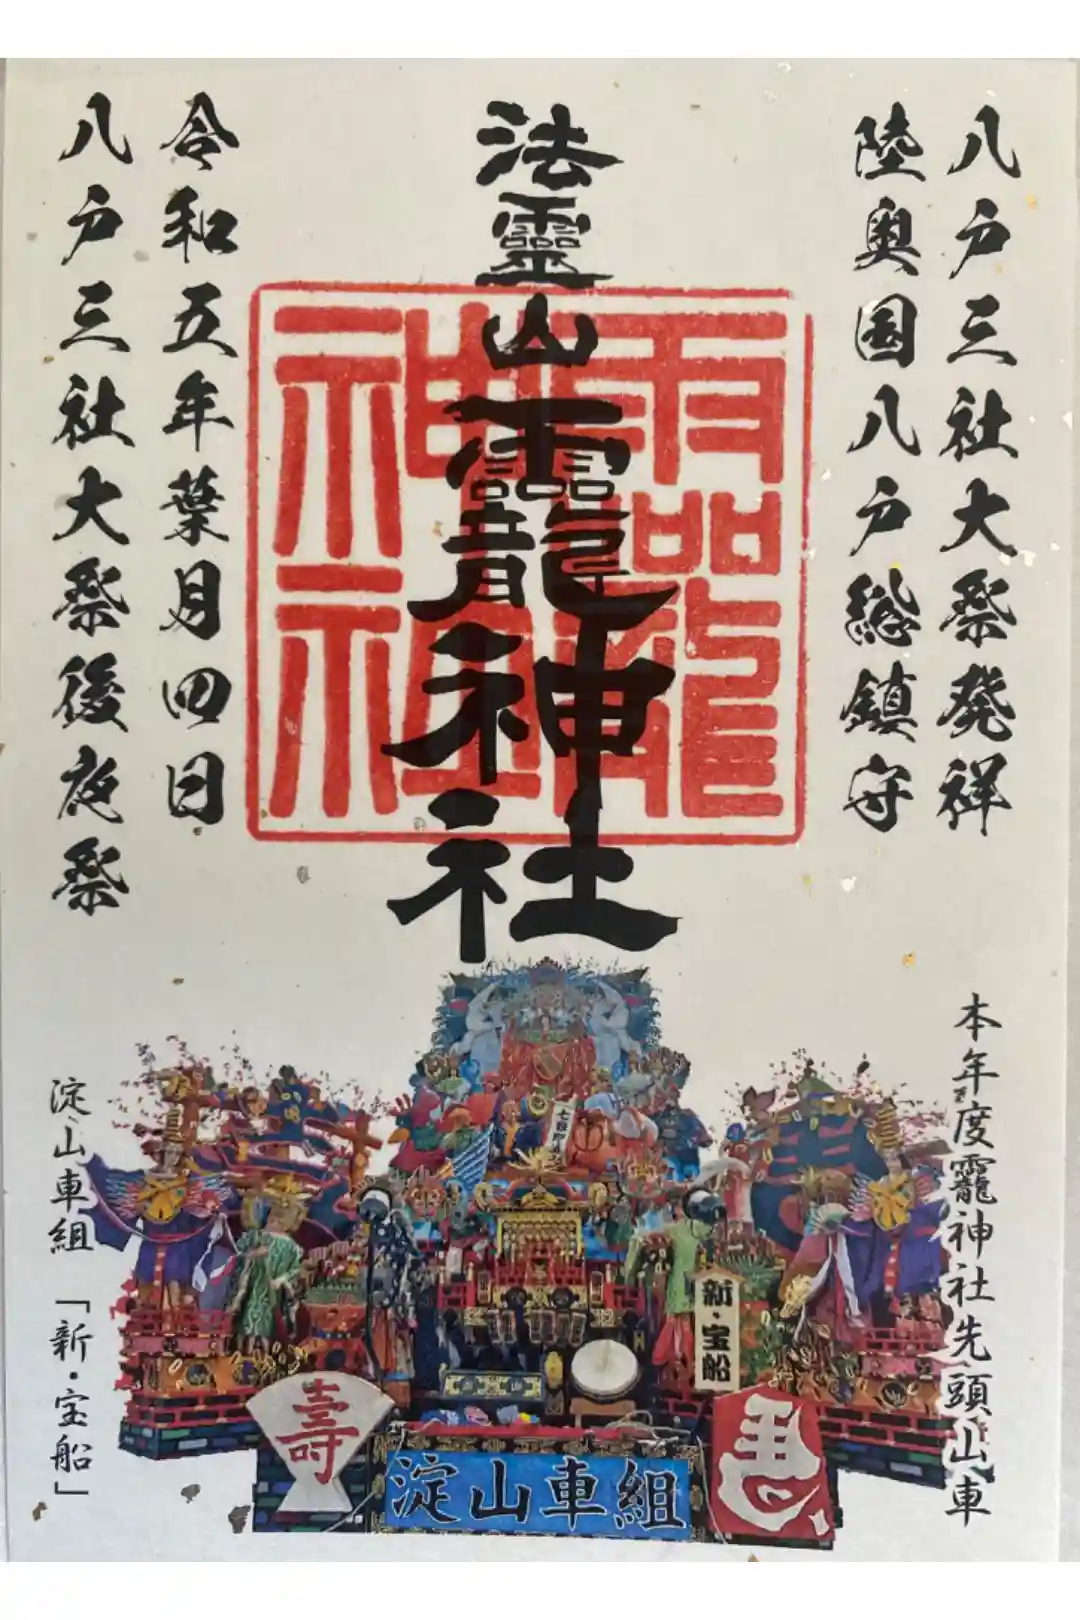 八戸三社大祭発祥
陸奥国八戸総鎮守
法霊山龗神社
龗神社
神社
令和五年葉月四日
八戸三社大祭後夜祭
本年度龗神社先頭山車
淀山車組 「新・宝船」
新・宝船
壽
淀山車組